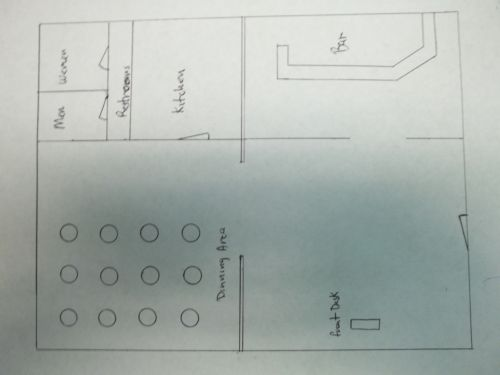 Women
Men
Restrooms
Kitchen
Bar
Dinning Area
front Desk